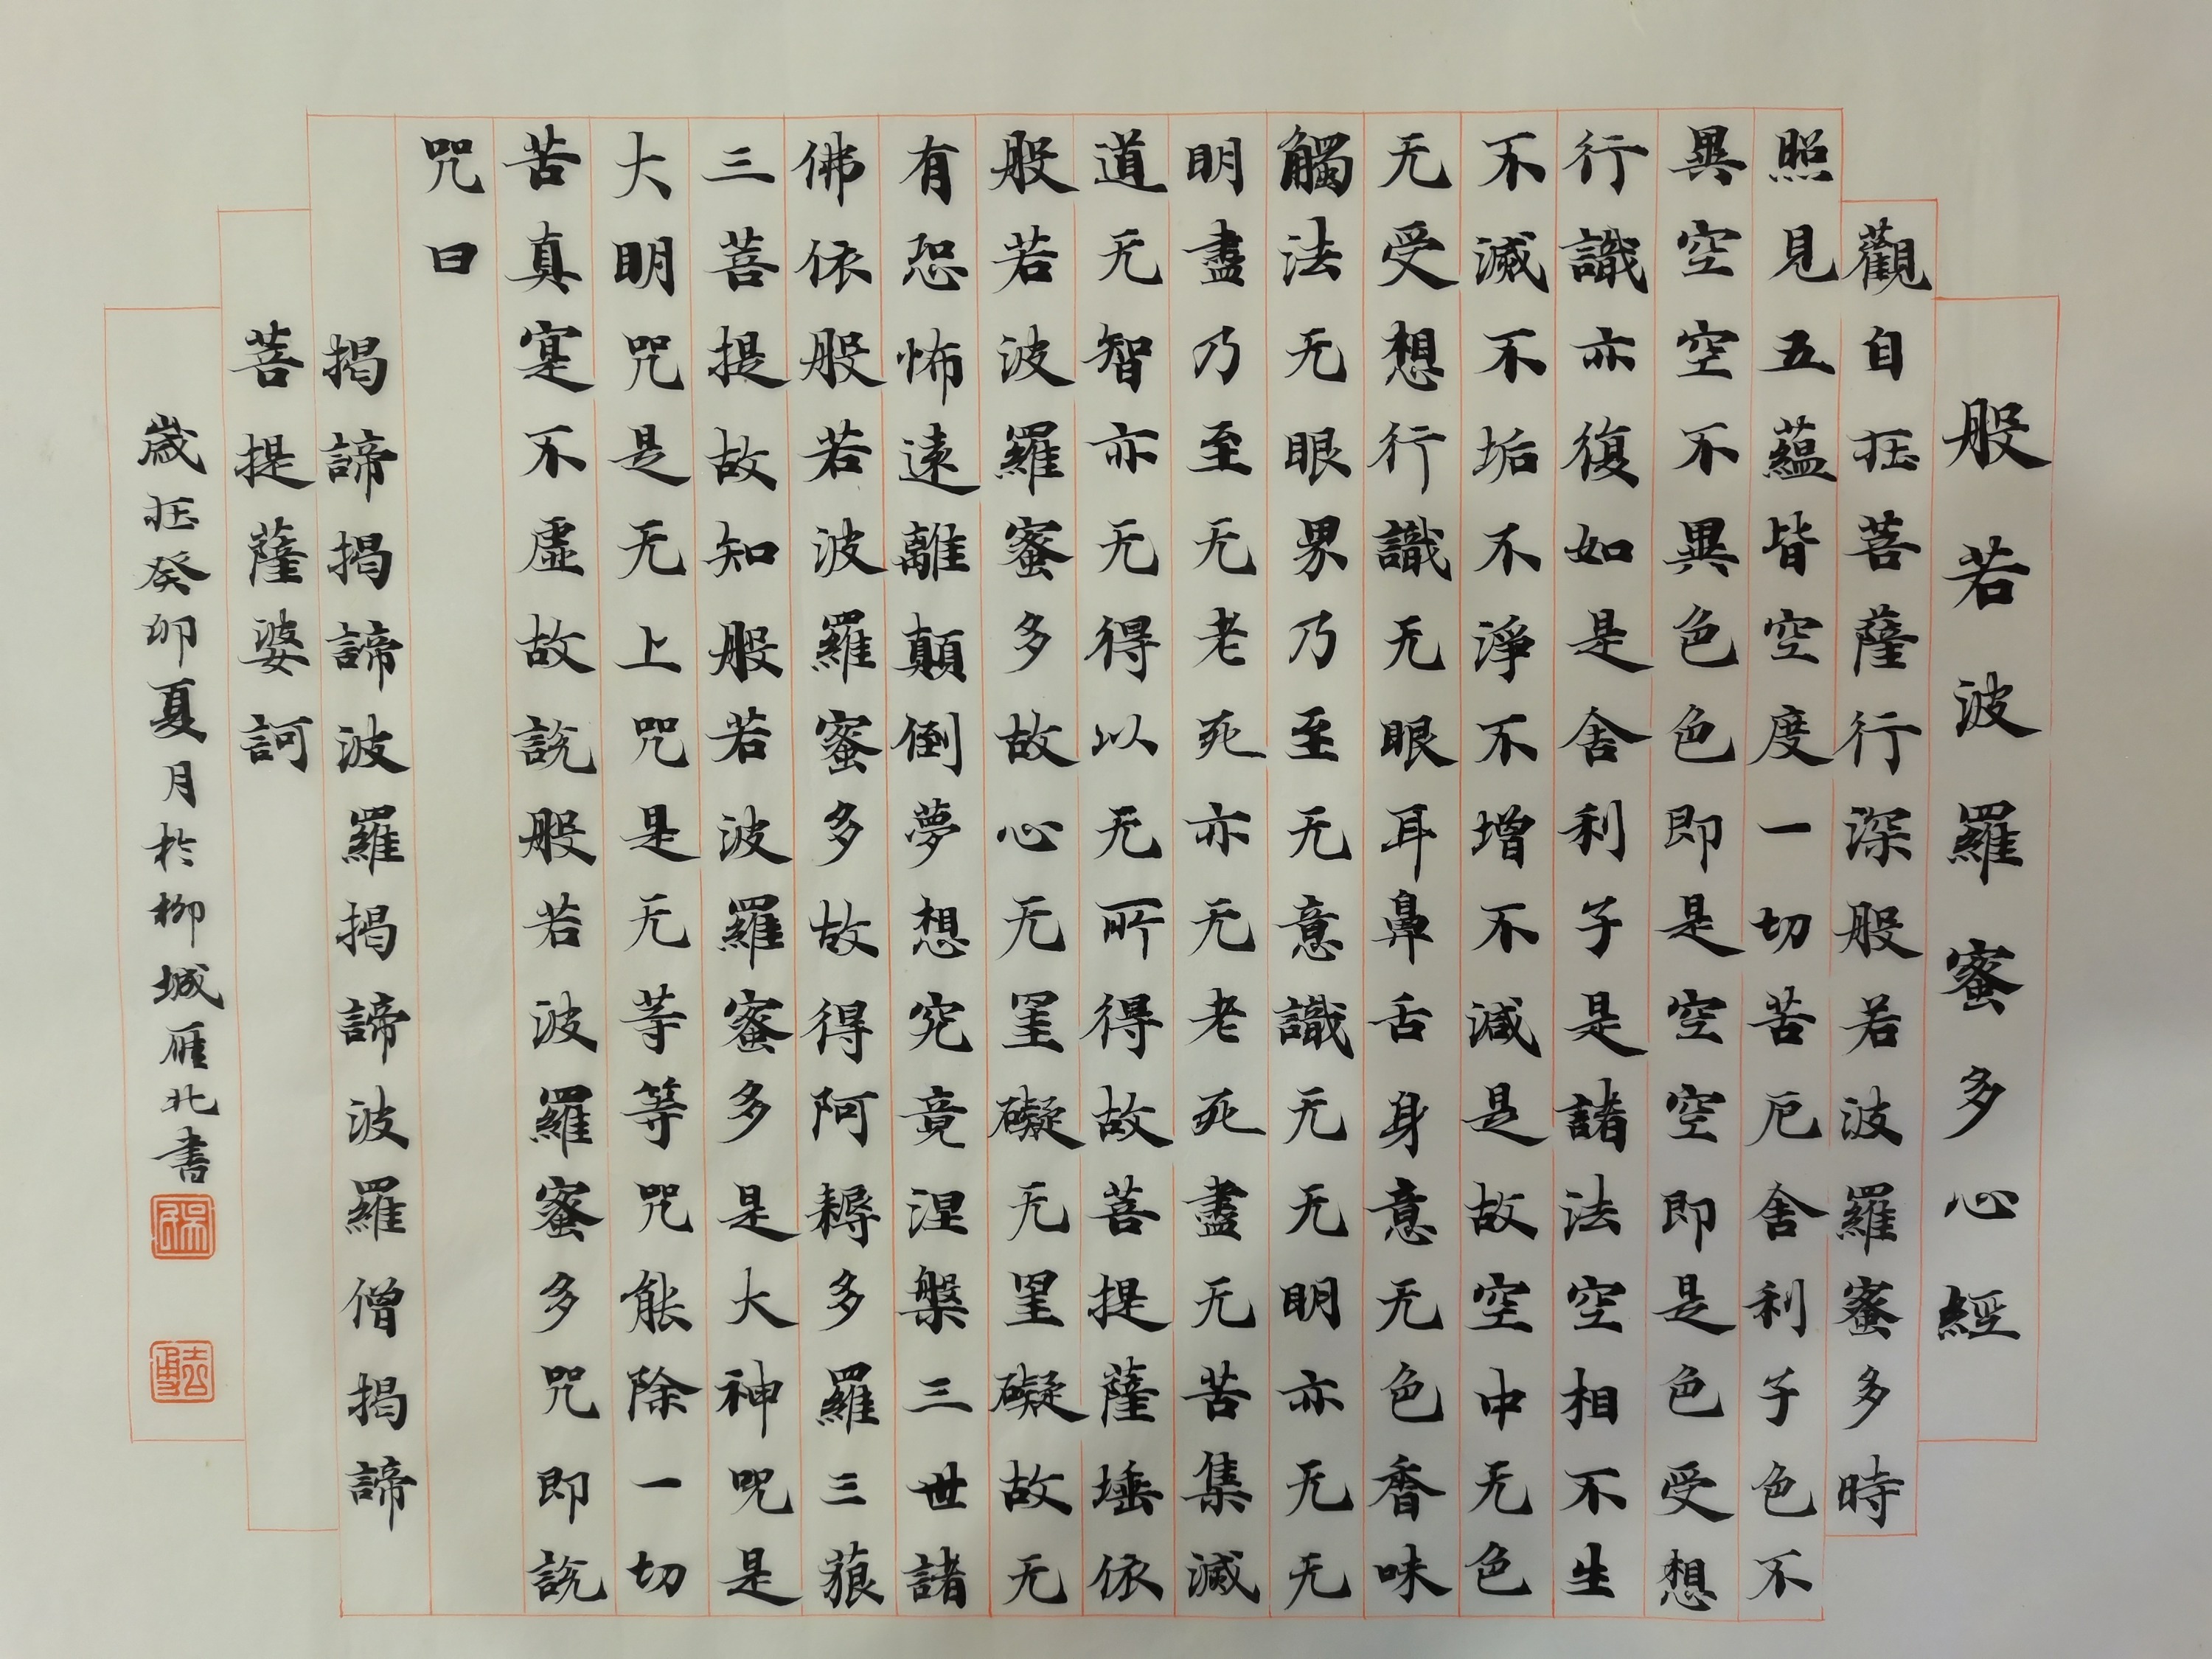 般若波羅蜜多心經
觀自在菩薩行深般若波羅蜜多時
照見五蘊皆空度一切苦厄舍利子色不
異空空不異色色即是空空即是色受想
行識亦復如是舍利子是諸法空相不生
不滅不垢不淨不增不減是故空中无色
无受想行識无眼耳鼻舌身意无色香味
觸法无眼界乃至无意識无无明亦无无
明盡乃至无老死亦无老死盡无苦集滅
道无智亦无得以无所得故菩提薩埵依
般若波羅蜜多故心无罣礙无罣礙故无
有恐怖遠離顛倒夢想究竟涅槃三世諸
佛依般若波羅蜜多故得阿耨多羅三藐
三菩提故知般若波羅蜜多是大神咒是
大明咒是无上咒是无等等咒能除一切
苦真寔不虛故說般若波羅蜜多咒即說
咒曰
揭諦揭諦波羅揭諦波羅僧揭諦
菩提薩婆訶
歲在癸卯夏月於柳城雁北書